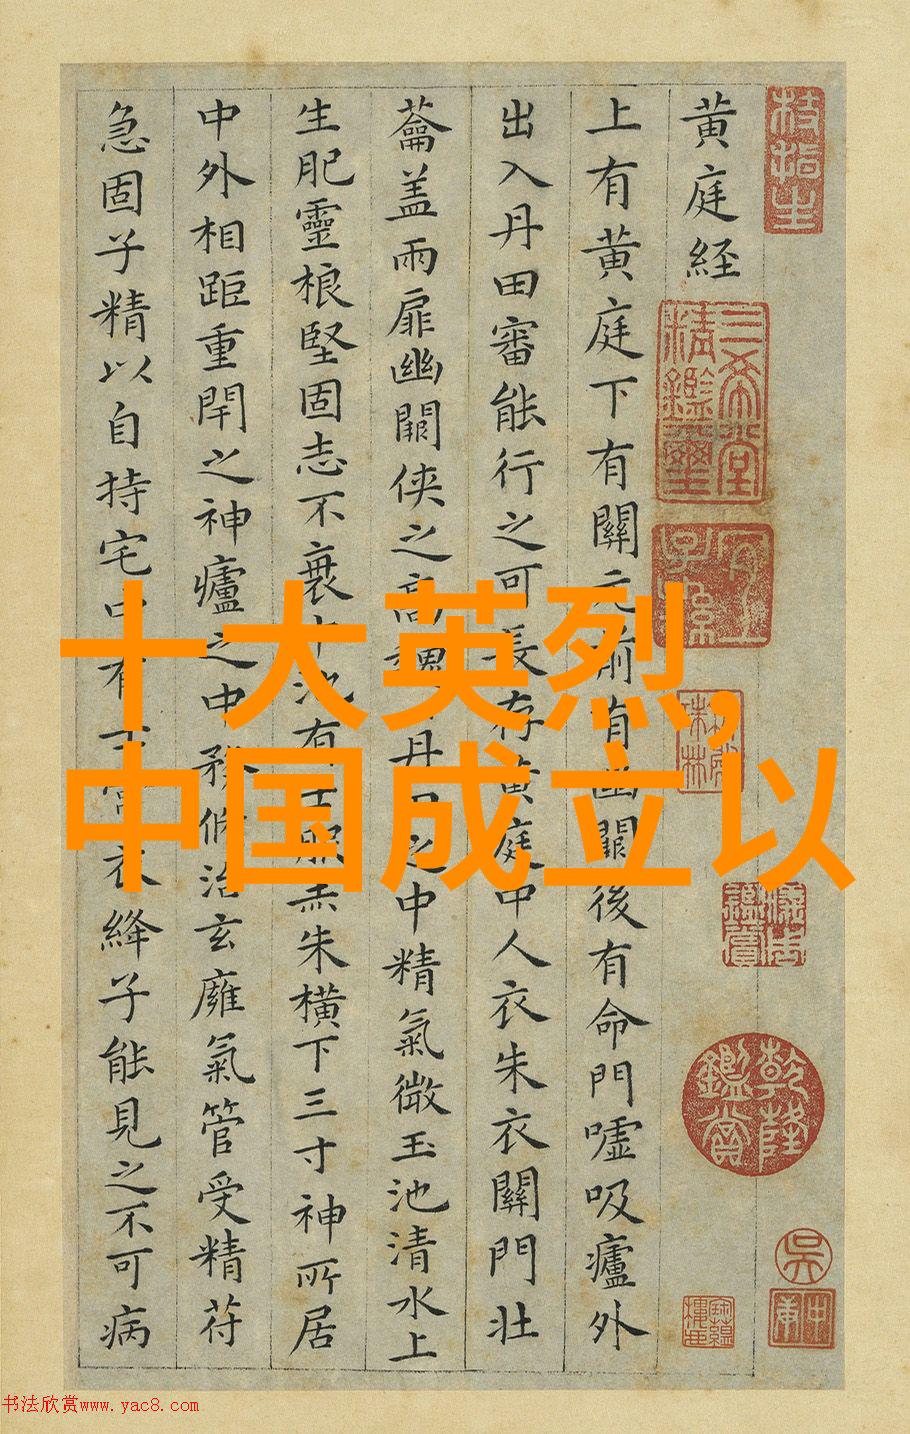 枝指生
黄庭経
三希堂精鑑璽
宜子孫
乾隆鑑賞
吳
上有黄庭下有關元前有幽闕後有命門嘘吸廬外
出入丹田審能行之可長存黄庭中人衣朱衣關門壯
蘥盖兩扉幽闕侠之高巍丹田之中精氣微玉池清水上
生肥靈根堅固志不衰中池有士服赤朱横下三寸神所居
中外相距重閇之神廬之中務脩治玄廱氣管受精苻
急固子精以自持宅中有士常衣絳子能見之不可病
十大英烈,
中国成立以
书法欣赏www.yac8.com